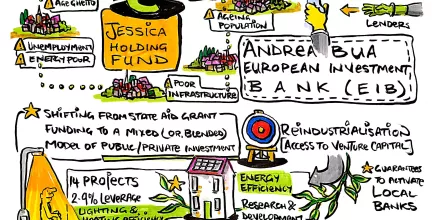 AGE GHETTO
JESSICA
HOLDING
FUND
UNEMPLOYMENT
ENERGY POOR
AGEING
POPULATION
POOR
INFRASTRUCTURE
LENDERS
ANDREA BUA
EUROPEAN INVESTMENT
BANK (EIB)
SHIFTING FROM STATE AID GRANT
FUNDING TO A MIXED (OR, BLENDED)
MODEL OF PUBLIC/PRIVATE INVESTMENT
REINDUSTRIALISATION
[ACCESS TO VENTURE CAPITAL]
14 PROJECTS
2.9% LEVERAGE
LIGHTING &
ENERGY
EFFICIENCY
RESEARCH &
DEVELOPMENT
GUARANTEES
TO ACTIVATE
LOCAL
BANKS